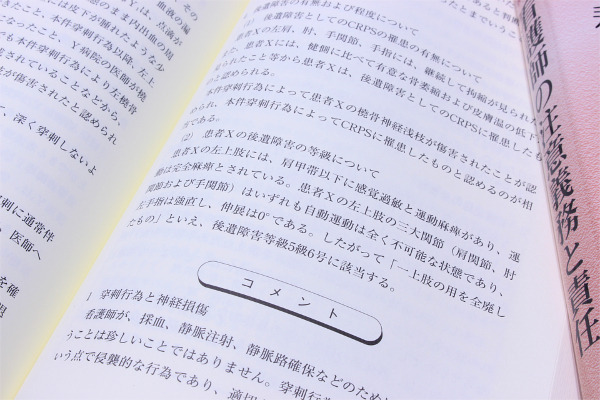 血液の漏
Y は、点滴が
のまま内出血の頻
には皮下が腫れたような少
き、本件穿刺行為以降、左上
になったこと、Y病院の医師が橈
も本件穿刺行為により左橈骨
されていることなどから、
が傷害されたと認められ
て、深く穿刺しないよ
刺に通常伴
。医師へ
を確
有無および程度について
(1) 後遺障害としてのCRPSの罹患の有無について
患者Xの左肩、肘、手関節、手指には、継続して拘縮が見られ
た、患者Xには、健側に比べて有意な骨萎縮および皮膚温の低下
られたこと等から患者Xは、後遺障害としてのCRPSに罹患したも
と認められる。
本件穿刺行為によって患者Xの橈骨神経浅枝が傷害されたことが認
められ、本件穿刺行為によってCRPSに罹患したものと認めるのが相
(2) 患者Xの後遺障害の等級について
患者Xの左上肢には、肩甲帯以下に感覚過敏と運動麻痺があり、運
動は完全麻痺とされている。患者Xの左上肢の三大関節(肩関節、肘
関節および手関節)はいずれも自動運動は全く不可能な状態であり、
左手指は強直し、伸展は0°である。したがって「一上肢の用を全廃し
たもの」といえ、後遺障害等級5級6号に該当する。
コメント
1 穿刺行為と神経損傷
看護師が、採血、静脈注射、静脈路確保などのために
うことは珍しいことではありません。穿刺行為
いう点で侵襲的な行為であり、適切
看護師の注意義務と責任